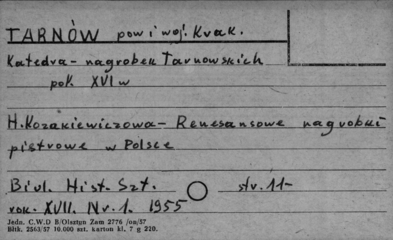 TARNÓW pow i woj. Krak.
Katedra - nagrobek Tarnowskich
poł. XVI w
H. Kozakiewiczowa - Renesansowe nagrobki
piętrowe w Polsce
Biul. Hist. Szt. str. 11-
rok. XVII. Nr. 1. 1955
Jedn. C.W.D B/Olsztyn Zam 2776 /on/57
Bltk. 2563/57 10.000 szt. karton kl. 7 g 220.